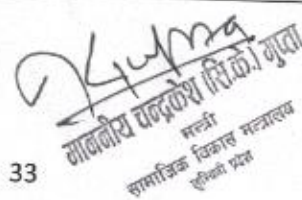 माननीय चन्द्रकेश (सि.के.) गुप्ता
मन्त्री
सामाजिक विकास मन्त्रालय
लुम्बिनी प्रदेश
33